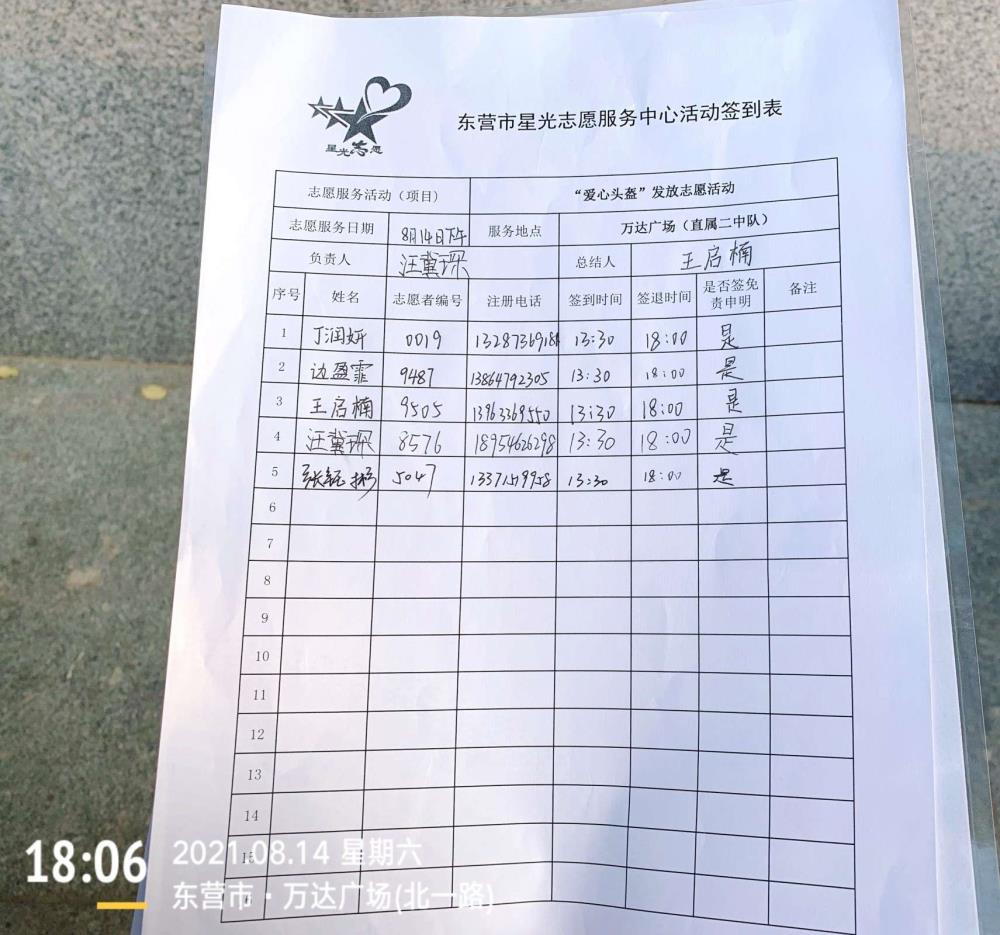 星光志愿
东营市星光志愿服务中心活动签到表
志愿服务活动（项目） “爱心头盔”发放志愿活动
志愿服务日期 8月14日下午 服务地点 万达广场（直属二中队）
负责人 汪冀琛 总结人 王启楠
序号 姓名 志愿者编号 注册电话 签到时间 签退时间 是否签免责申明 备注
1 丁润妍 0019 13:30 18:00 是
2 边盈霏 9487 13864792305 13:30 18:00 是
3 王启楠 9505 13963369550 13:30 18:00 是
4 汪冀琛 8576 18954626298 13:30 18:00 是
5 5047 13:30 18:00 是
6
7
8
9
10
11
12
13
14
15
18:06 2021.08.14 星期六
东营市·万达广场(北一路)